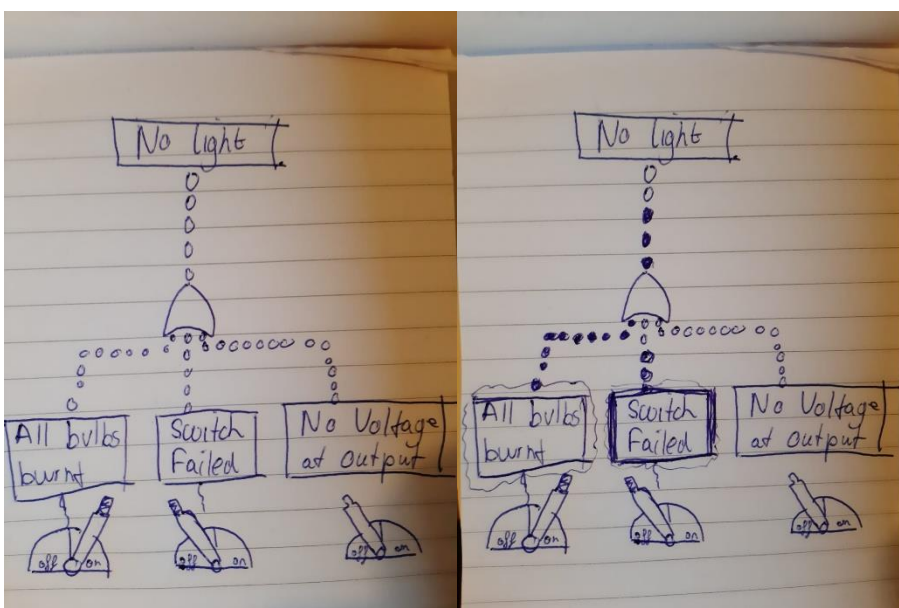 No light
All bulbs
burnt
Switch
Failed
No Voltage
at output
off on
off on
off on
No light
All bulbs
burnt
Switch
Failed
No Voltage
at output
off on
off on
off on